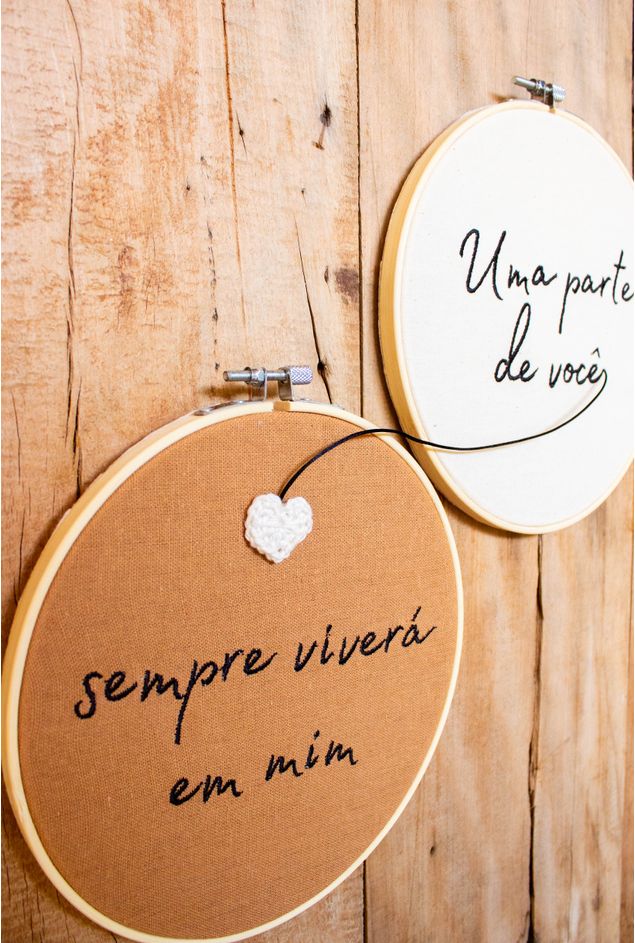 Uma parte
de você
sempre viverá
em mim